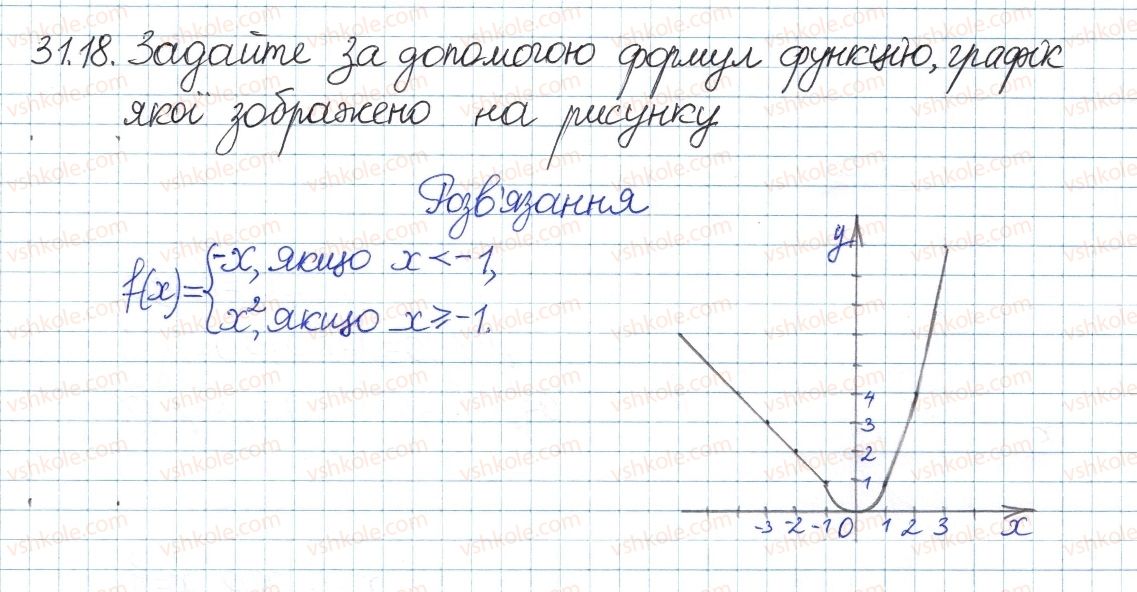 31.18. Задайте за допомогою формул функцію, графік
якої зображено на рисунку
Розв'язання
f(x)={-x, якщо x<-1,
x², якщо x⩾-1.
y
4
3
2
1
-3 -2 -1 0 1 2 3 x
vshkole.com